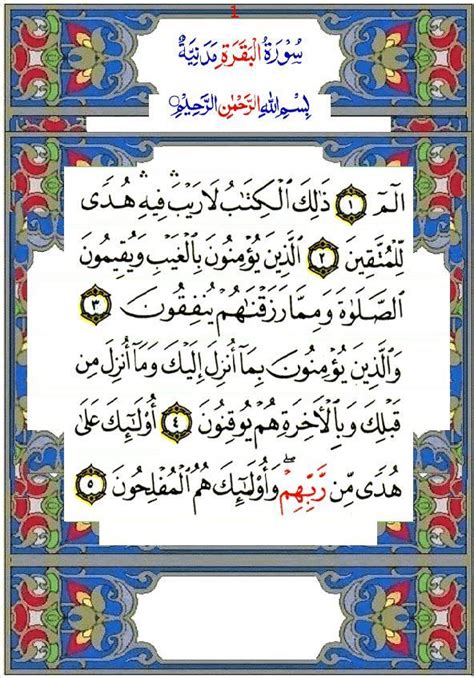 1
سُورَةُ الْبَقَرَةِ مَدَنِيَّةٌ
بِسْمِ اللهِ الرَّحْمٰنِ الرَّحِيْمِ
الٓمٓ ١ ذَٰلِكَ ٱلْكِتَٰبُ لَا رَيْبَ ۛ فِيهِ ۛ هُدًى
لِّلْمُتَّقِينَ ٢ ٱلَّذِينَ يُؤْمِنُونَ بِٱلْغَيْبِ وَيُقِيمُونَ
ٱلصَّلَوٰةَ وَمِمَّا رَزَقْنَٰهُمْ يُنفِقُونَ ٣
وَٱلَّذِينَ يُؤْمِنُونَ بِمَآ أُنزِلَ إِلَيْكَ وَمَآ أُنزِلَ مِن
قَبْلِكَ وَبِٱلْأَخِرَةِ هُمْ يُوقِنُونَ ٤ أُو۟لَٰٓئِكَ عَلَىٰ
هُدًى مِّن رَّبِّهِمْ ۖ وَأُو۟لَٰٓئِكَ هُمُ ٱلْمُفْلِحُونَ ٥